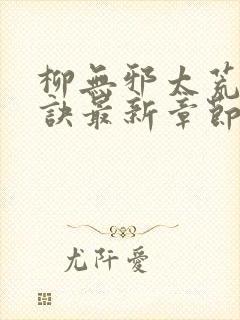 柳無邪太荒
訣最新章節
尤阡愛